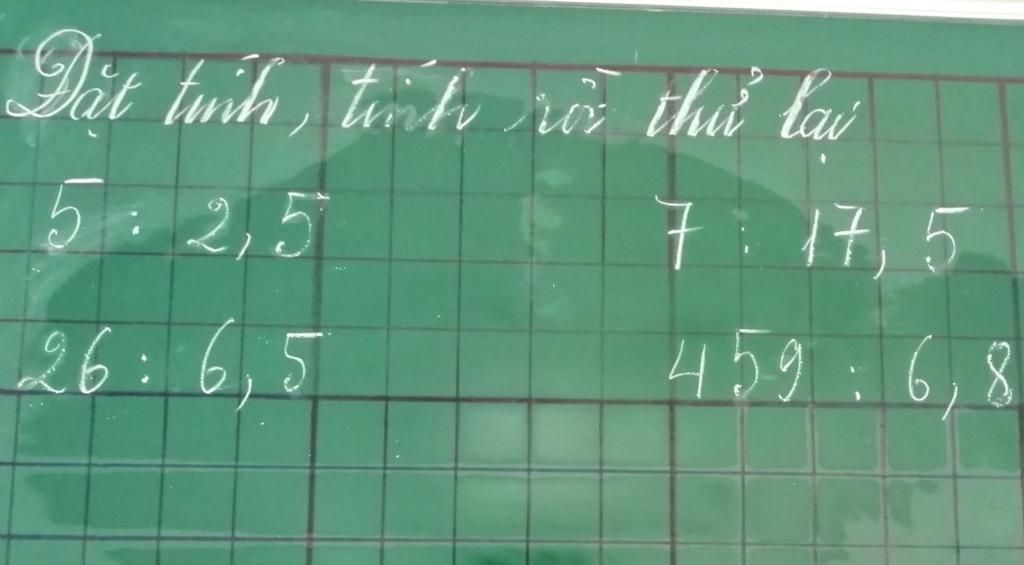 Đặt tính, tính rồi thử lại
5 : 2,5 7 : 17,5
26 : 6,5 459 : 6,8